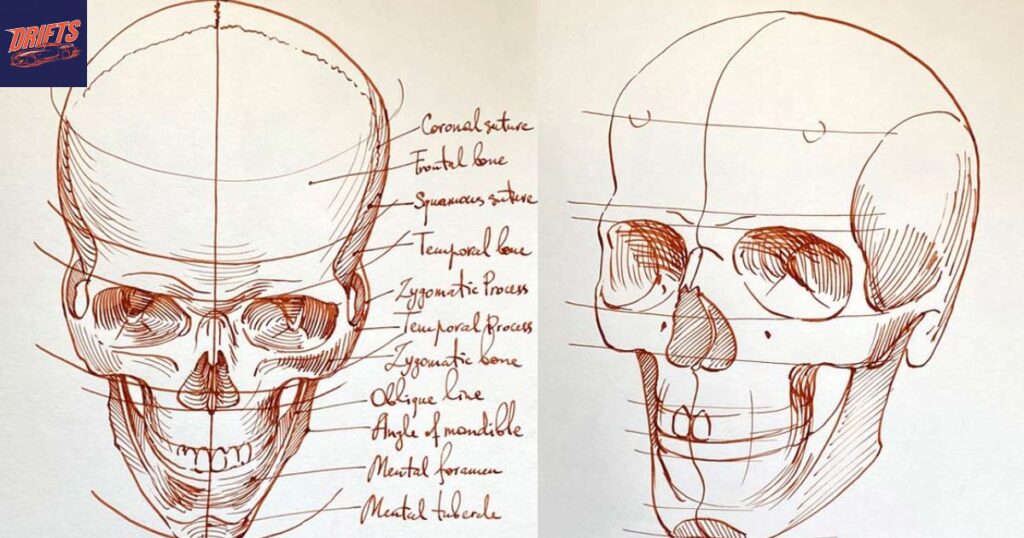 DRIFTS
Coronal suture
Frontal bone
Squamous suture
Temporal bone
Zygomatic Process
Temporal Process
Zygomatic bone
Oblique line
Angle of mandible
Mental foramen
Mental tubercle